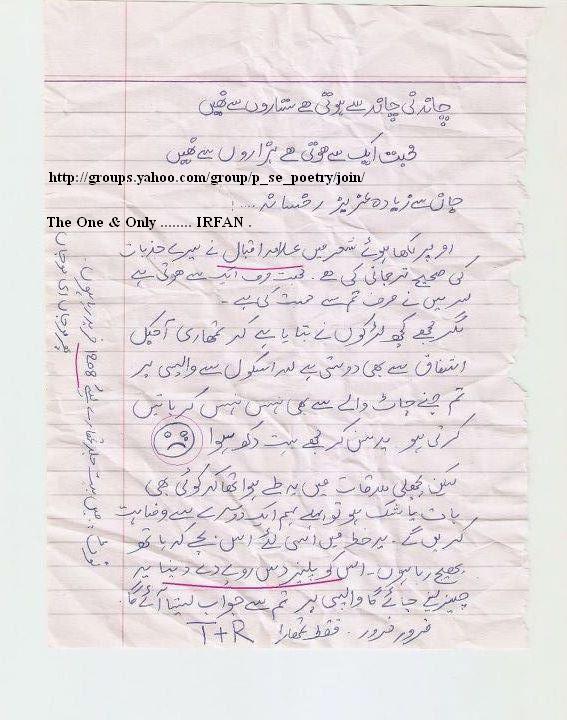 چاندنی چاند سے ہوتی ھے ستاروں سے نھیں
محبت ایک سے ھوتی ھے ہزاروں سے نھیں
http://groups.yahoo.com/group/p_se_poetry/join/
جان سے زیادہ عزیز رخسانہ ..... !
The One & Only ........ IRFAN .
اوپر لکھا ہوئے شعر میں علامہ اقبال نے میرے جذبات
کی صحیح ترجمانی کی ھے ۔ محبت صرف ایک سے ھوتی ہے
میں نے صرف تم سے محبت کی ہے -
مگر مجھے کچھ لڑکوں نے بتایا ہے کہ تمھاری آجکل
اشفاق سے بھی دوستی ہے اور اسکول سے واپسی پر
تم چنے چاٹ والے سے بھی ہنس ہنس کر باتیں
کرتی ہو ۔ یہ سن کر مجھے بہت دکھ ہوا
لیکن پچھلی ملاقات میں یہ طے ہوا تھا کہ کوئی بھی
بات یا شک ہو تو پہلے ہم ایک دوسرے سے وضاحت
کریں گے ۔ یہ خط میں اسی لئے اس بچے کے ہاتھ
بھیج رہا ہوں - اس کو پلیز دس روپے دے دینا یہ
چیز لینے جائے گا واپسی پر تم سے جواب لیتا آئے گا
ضرور ضرور . فقط تمھارا T+R
میں بہت جلد تمھارے لئے 1208 خرید رہا ہوں .
پھر موجاں ای موجاں